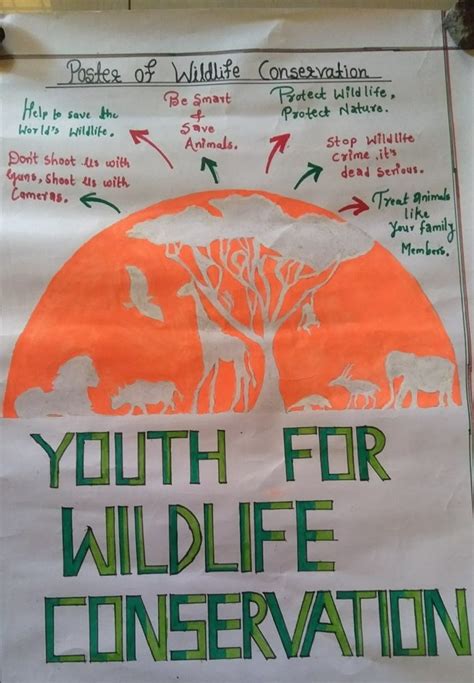 Poster of Wildlife Conservation
Help to save the
World's Wildlife.
Be Smart
&
Save
Animals.
Protect Wildlife,
Protect Nature.
Don't Shoot Us with
Guns, Shoot Us with
Cameras.
Stop Wildlife
Crime, it's
dead Serious.
Treat Animals
like
Your family
Members.
YOUTH FOR
WILDLIFE
CONSERVATION